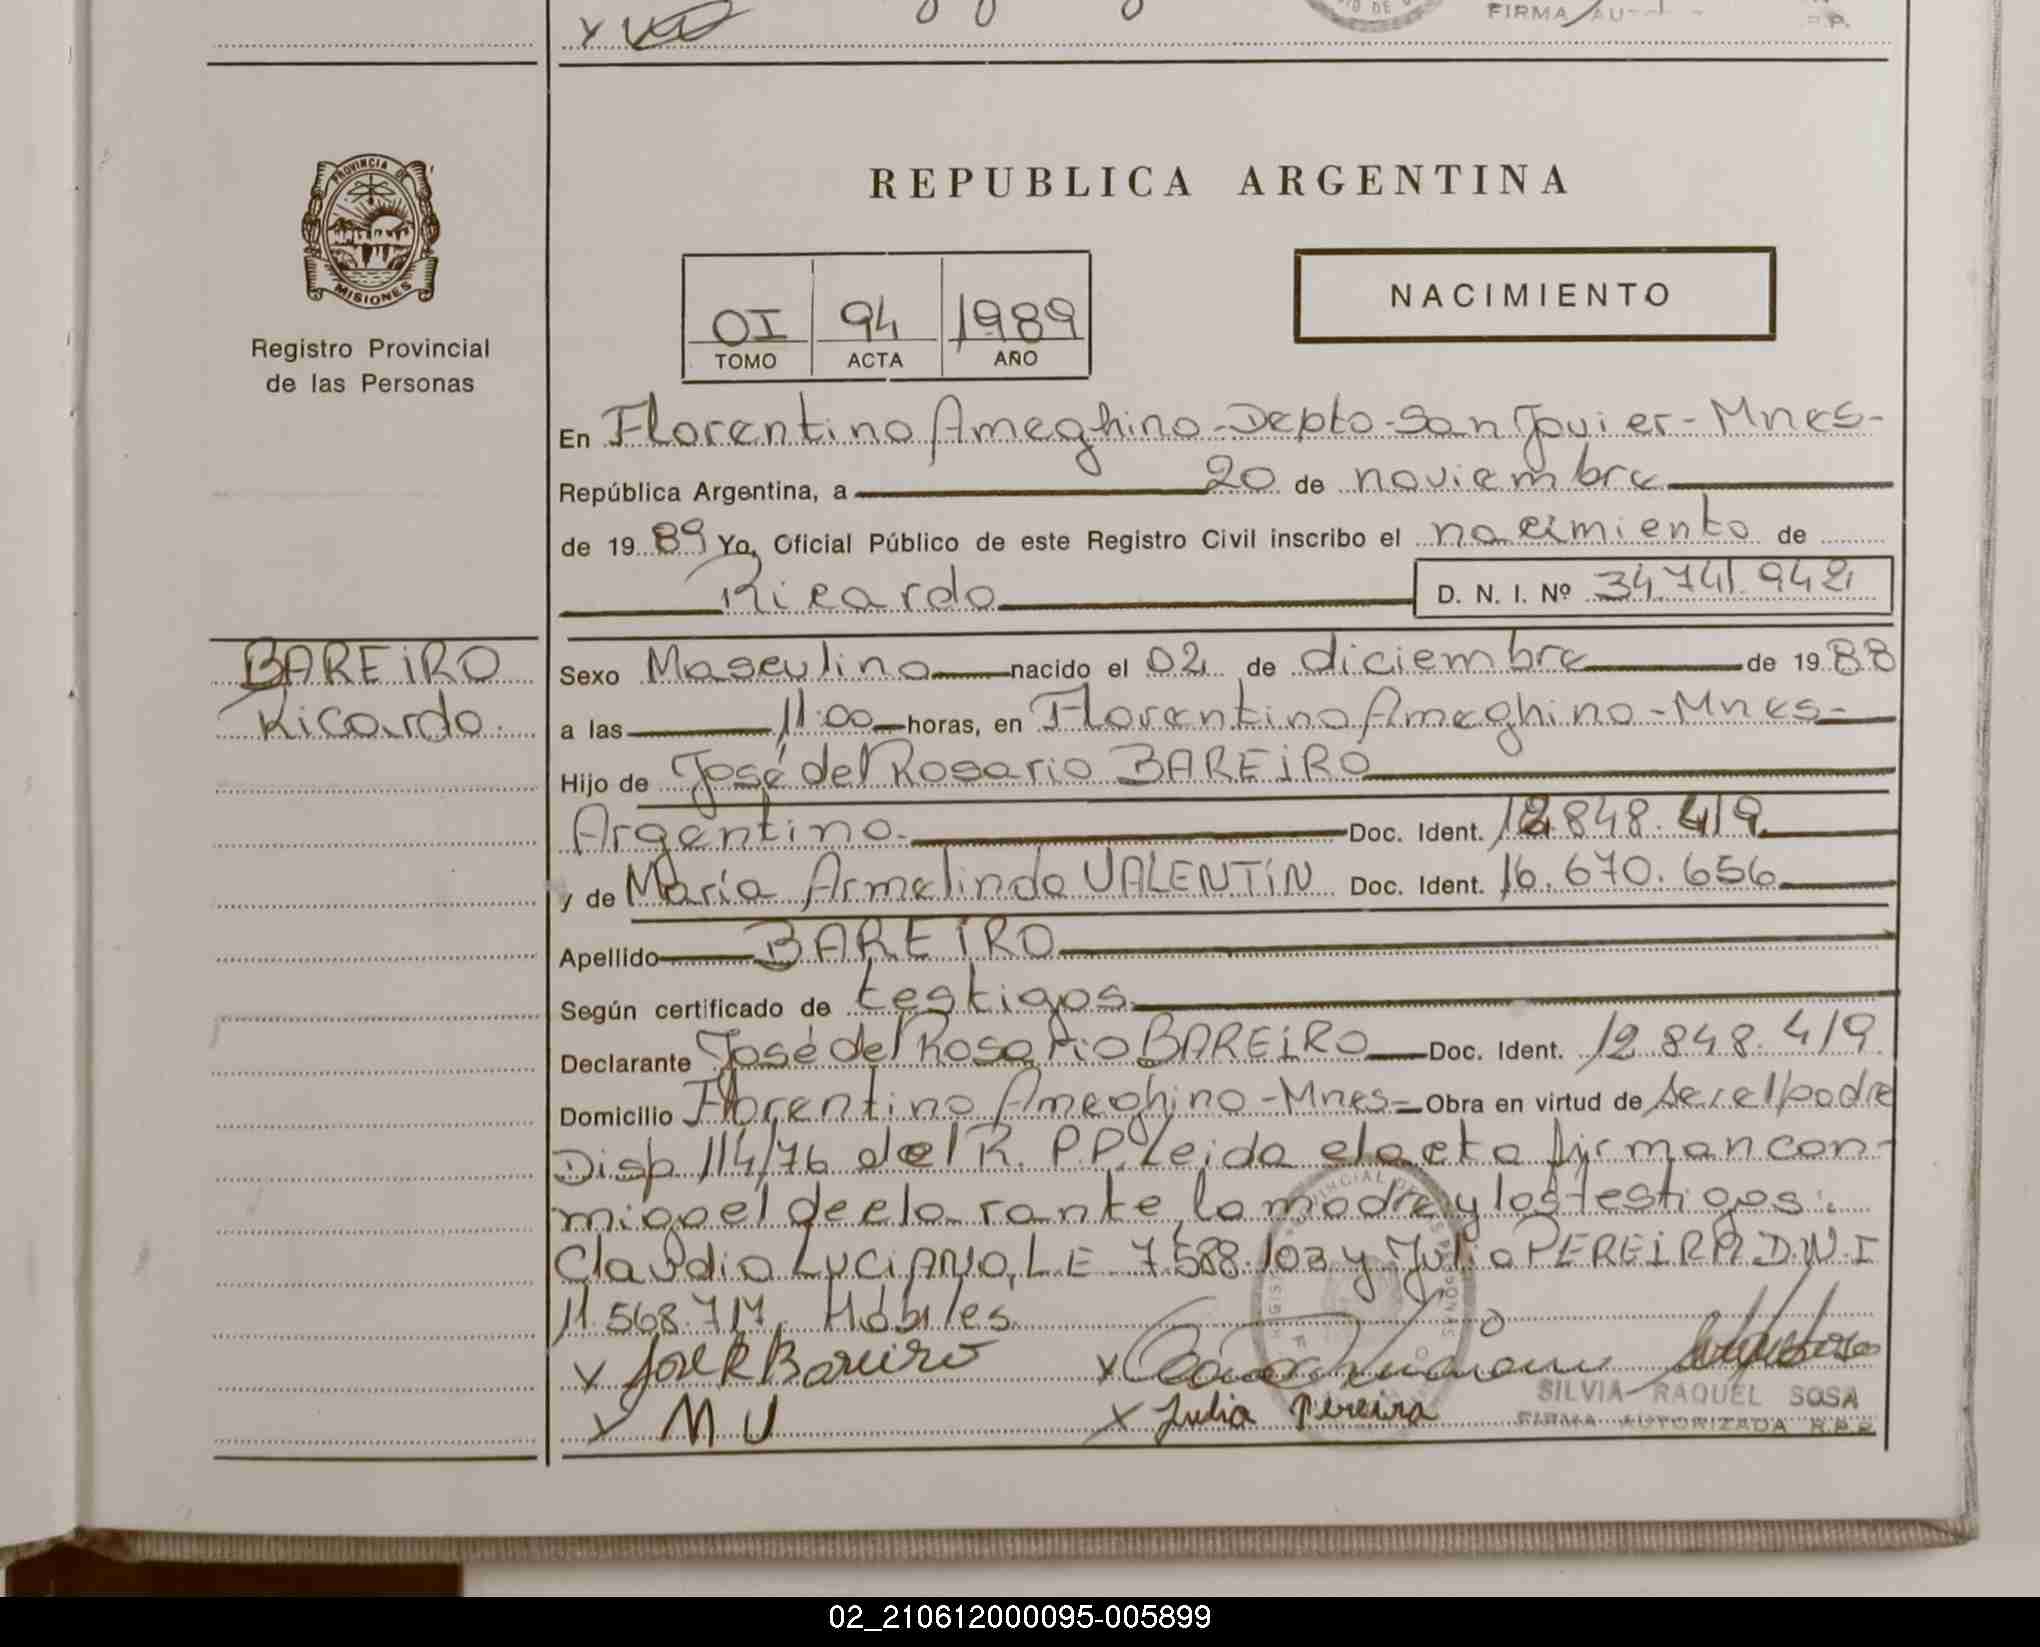 FIRMA AU
P.
PROVINCIA DE
MISIONES
Registro Provincial
de las Personas
REPUBLICA ARGENTINA
OI 94 1989
TOMO ACTA AÑO
NACIMIENTO
En Florentino Ameghino-Depto-San Javier-Mnes-
República Argentina, a 20 de noviembre
de 1989 Yo, Oficial Público de este Registro Civil inscribo el nacimiento de
Ricardo D. N. I. Nº 34.741.942
BAREIRO
Ricardo.
Sexo Masculino nacido el 02 de diciembre de 1988
a las 11:00 horas, en Florentino Ameghino-Mnes-
Hijo de José del Rosario BAREIRO
Argentino. Doc. Ident. 12.848.419
y de María Armelinda VALENTIN Doc. Ident. 16.670.656
Apellido BAREIRO
Según certificado de testigos
Declarante José del Rosario BAREIRO Doc. Ident. 12.848.419
Domicilio Florentino Ameghino-Mnes- Obra en virtud de ser el padre
Disp 114/76 del R.P.P. Leida el acta firman con-
migo el declarante, la madre y los testigos:
Claudio LUCIANO, L E 7.588.103 y Julia PEREIRA D.N.I
11.568.717. Hábiles.
x José R Bareiro x Luciano
x M V x Julia Pereira
SILVIA RAQUEL SOSA
FIRMA AUTORIZADA R.P.P.
02_210612000095-005899